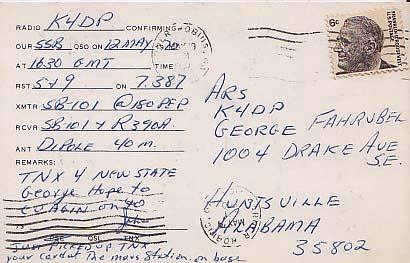 RADIO K4DP CONFIRMING
OUR SSB QSO ON 12 MAY 70
AT 1630 GMT TIME
RST 5+9 ON 7.387
XMTR SB-101 @ 180 PEP
RCVR SB-101 + R390A
ANT DIPOLE 40 m.
REMARKS:
TNX 4 NEW STATE
George Hope to
CU AGIN ON 40
John
PSE QSL TNX
JUST PICKED UP TNX
your card at The mars station. on base
6¢
FRANKLIN D. ROOSEVELT
U.S. POSTAGE
ARS
K4DP
GEORGE FAHRUBEL
1004 DRAKE AVE
SE.
HUNTSVILLE
ALABAMA
35802